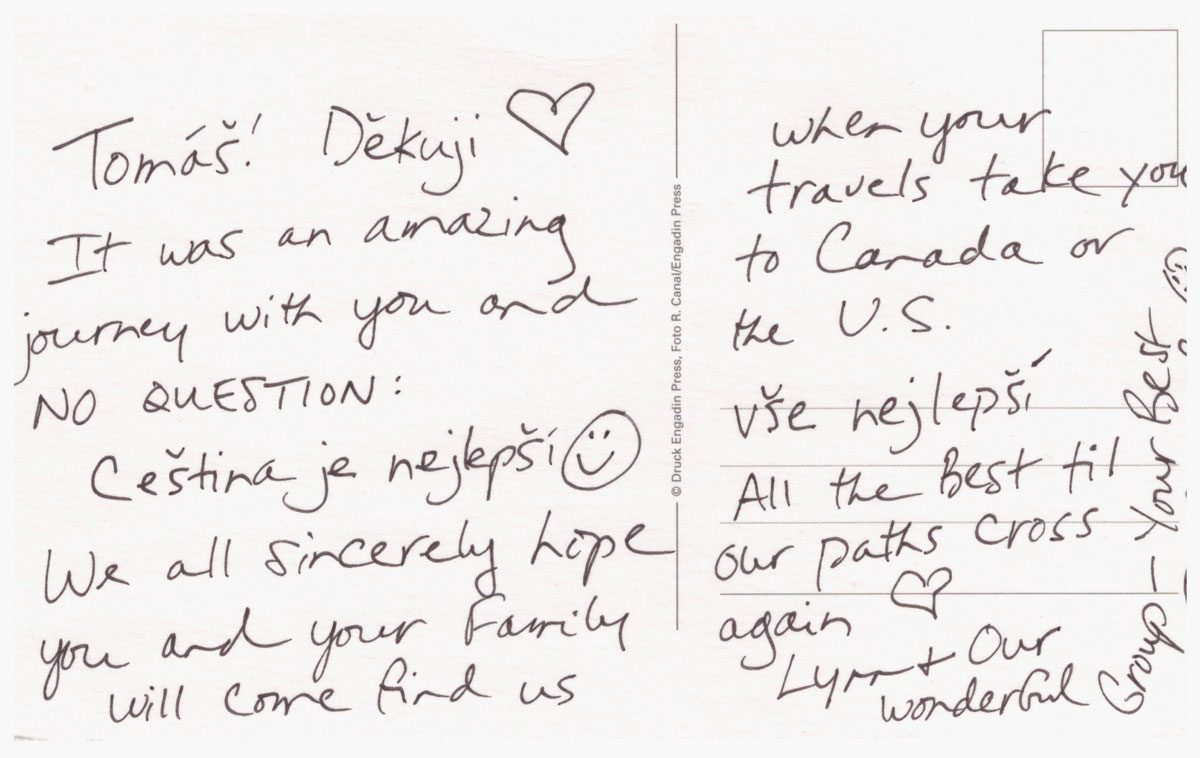 Tomáš! Děkuji ♡
It was an amazing
journey with you and
NO QUESTION:
Čeština je nejlepší ☺
We all sincerely hope
you and your Family
will come find us
© Druck Engadin Press, Foto R. Canal/Engadin Press
when your
travels take you
to Canada or
the U.S.
vše nejlepší
All the Best til
our paths cross
again ♡
Lynn + Our
wonderful
Group – Your Best ☺